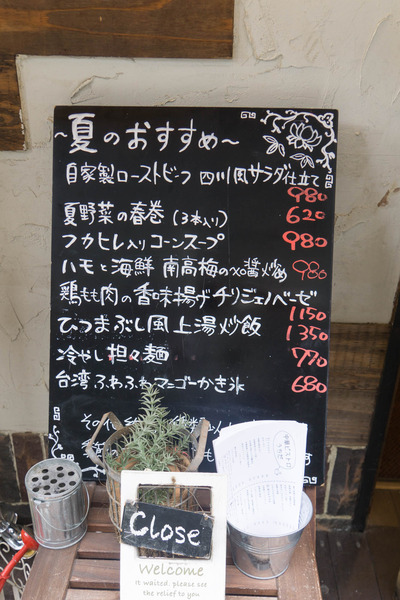 ~夏のおすすめ~
自家製ローストビーフ 四川風サラダ仕立て
980
夏野菜の春巻(3本入り) 620
フカヒレ入りコーンスープ 980
ハモと海鮮 南高梅のXO醤炒め 980
鶏もも肉の香味揚げチリジェノベーゼ
1150
ひつまぶし風上湯炒飯 1350
冷やし担々麺 770
台湾ふわふわマンゴーかき氷 680
その他
Close
Welcome
It waited. please see
the relief to you